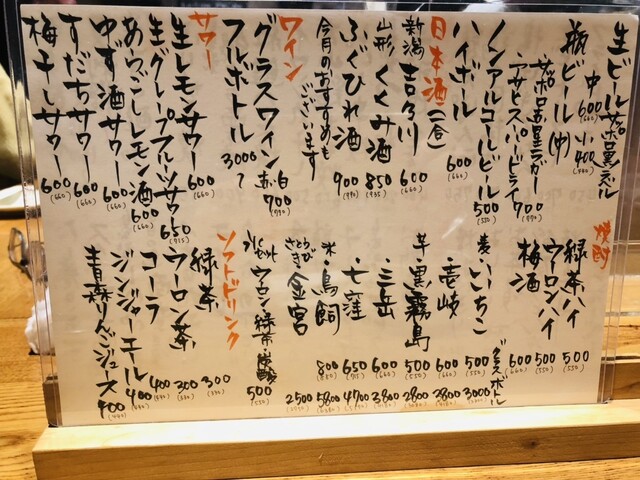 生ビール サッポロ黒ラベル
中600(660) 小400(440)
瓶ビール(中)
・サッポロ赤星ラガー
・アサヒスーパードライ 700(770)
ノンアルコールビール 500(550)
ハイボール 600(660)
日本酒(一合)
新潟 吉乃川 600(660)
山形 くくみ酒 850(935)
ふぐひれ酒 900(990)
今月のおすすめも
ございます
ワイン
グラスワイン 赤・白 700(770)
フルボトル 3000〜
サワー
生レモンサワー 600(660)
生グレープフルーツサワー 650(715)
あらごしレモン酒 600(660)
ゆず酒サワー 600(660)
すだちサワー 600(660)
梅干しサワー 600(660)
焼酎
緑茶ハイ 500(550)
ウーロンハイ 500(550)
梅酒 600(660)
グラス ボトル
麦・いいちこ 500(550) 3000
・壱岐 600(660) 3800(4180)
芋・黒霧島 500(550) 2800(3080)
・三岳 600(660) 3800(4180)
・七窪 650(715) 4700
米・鳥飼 800(880) 5800
さとうきび 金宮 2500(2750)
ウーロン 緑茶 炭酸 500(550)
ソフトドリンク
緑茶 300(330)
ウーロン茶 300(330)
コーラ 400(440)
ジンジャーエール 400(440)
青森りんごジュース 400(440)